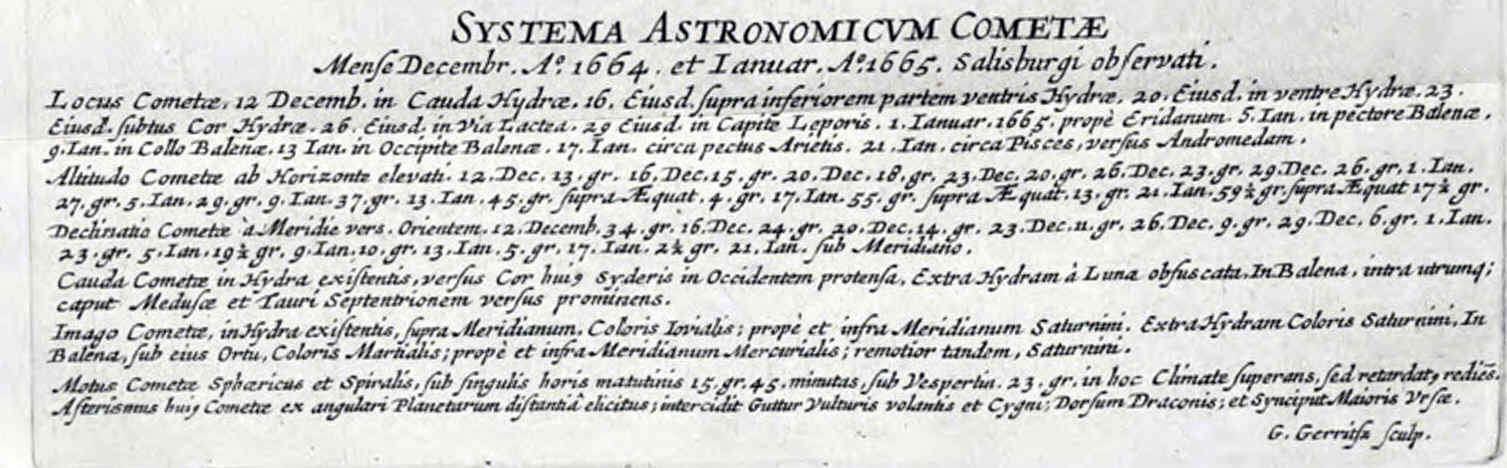 SYSTEMA ASTRONOMICVM COMETÆ
Menſe Decembr. Aº. 1664. et Ianuar. Aº. 1665. Salisburgi obſervati.
Locus Cometæ, 12 Decemb. in Cauda Hydræ. 16. Eiusd. ſupra inferiorem partem ventris Hydræ. 20. Eiusd. in ventre Hydræ. 23.
Eiusd. ſubtus Cor Hydræ. 26. Eiusd. in Via Lactea. 29 Eiusd. in Capite Leporis. 1. Ianuar. 1665. propè Eridanum. 5. Ian. in pectore Balenæ.
9. Ian. in Collo Balenæ. 13 Ian. in Occipite Balenæ. 17. Ian. circa pectus Arietis. 21. Ian. circa Pisces, verſus Andromedam.
Altitudo Cometæ ab Horizonte elevati. 12. Dec. 13. gr. 16. Dec. 15. gr. 20. Dec. 18. gr. 23. Dec. 20. gr. 26. Dec. 23. gr. 29. Dec. 26. gr. 1. Ian.
27. gr. 5. Ian. 29. gr. 9. Ian. 37. gr. 13. Ian. 45. gr ſupra Æquat. 4. gr. 17. Ian. 55. gr. ſupra Æquat. 13. gr. 21. Ian. 59½ gr. ſupra Æquat 17½ gr.
Declinatio Cometæ à Meridie vers. Orientem. 12. Decemb. 34. gr. 16. Dec. 24. gr. 20. Dec. 14. gr. 23. Dec. 11. gr. 26. Dec. 9. gr. 29. Dec. 6. gr. 1. Ian.
23. gr. 5. Ian. 19½ gr. 9. Ian. 10. gr. 13. Ian. 5. gr. 17. Ian. 2½ gr. 21. Ian. ſub Meridiano.
Cauda Cometæ in Hydra exiſtentis, verſus Cor huiꝰ Syderis in Occidentem protenſa. Extra Hydram à Luna obfuscata. In Balena, intra utrumq;
caput Meduſæ et Tauri Septentrionem verſus prominens.
Imago Cometæ, in Hydra exiſtentis, ſupra Meridianum, Coloris Iovialis; propè et infra Meridianum Saturnini. Extra Hydram Coloris Saturnini, In
Balena, ſub eius Ortu, Coloris Martialis; propè et infra Meridianum Mercurialis; remotior tandem, Saturnini.
Motus Cometæ Sphæricus et Spiralis, ſub ſingulis horis matutinis 15. gr. 45. minutas, ſub Veſpertin. 23. gr. in hoc Climate ſuperans, ſed retardatꝰ rediẽs.
Aſteriſmus huiꝰ Cometæ ex angulari Planetarum diſtantiâ elicitus; intercidit Guttur Vulturis volantis et Cygni; Dorſum Draconis; et Synciput Maioris Vrſæ.
G. Gerritſz ſculp.